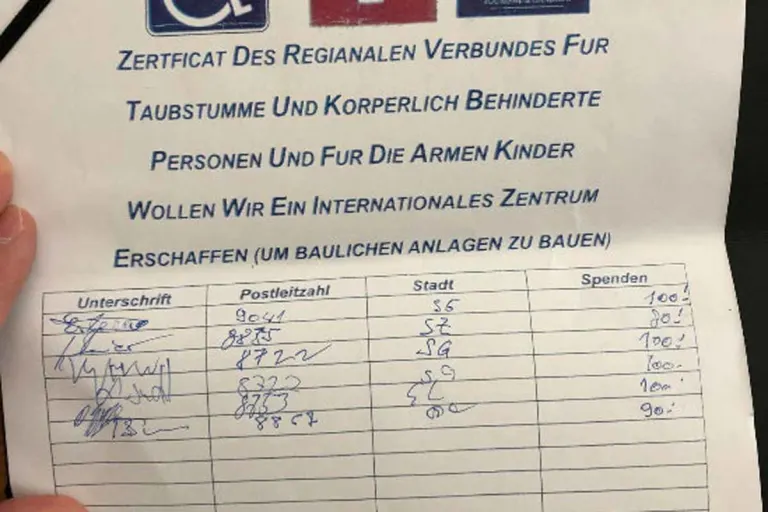 ZERTFICAT DES REGIANALEN VERBUNDES FUR
TAUBSTUMME UND KORPERLICH BEHINDERTE
PERSONEN UND FUR DIE ARMEN KINDER
WOLLEN WIR EIN INTERNATIONALES ZENTRUM
ERSCHAFFEN (UM BAULICHEN ANLAGEN ZU BAUEN)
Unterschrift Postleitzahl Stadt Spenden
9041 SG 100.-
8855 SZ 80.-
8722 SG 100.-
8722 SG 100.-
8753 100.-
90.-